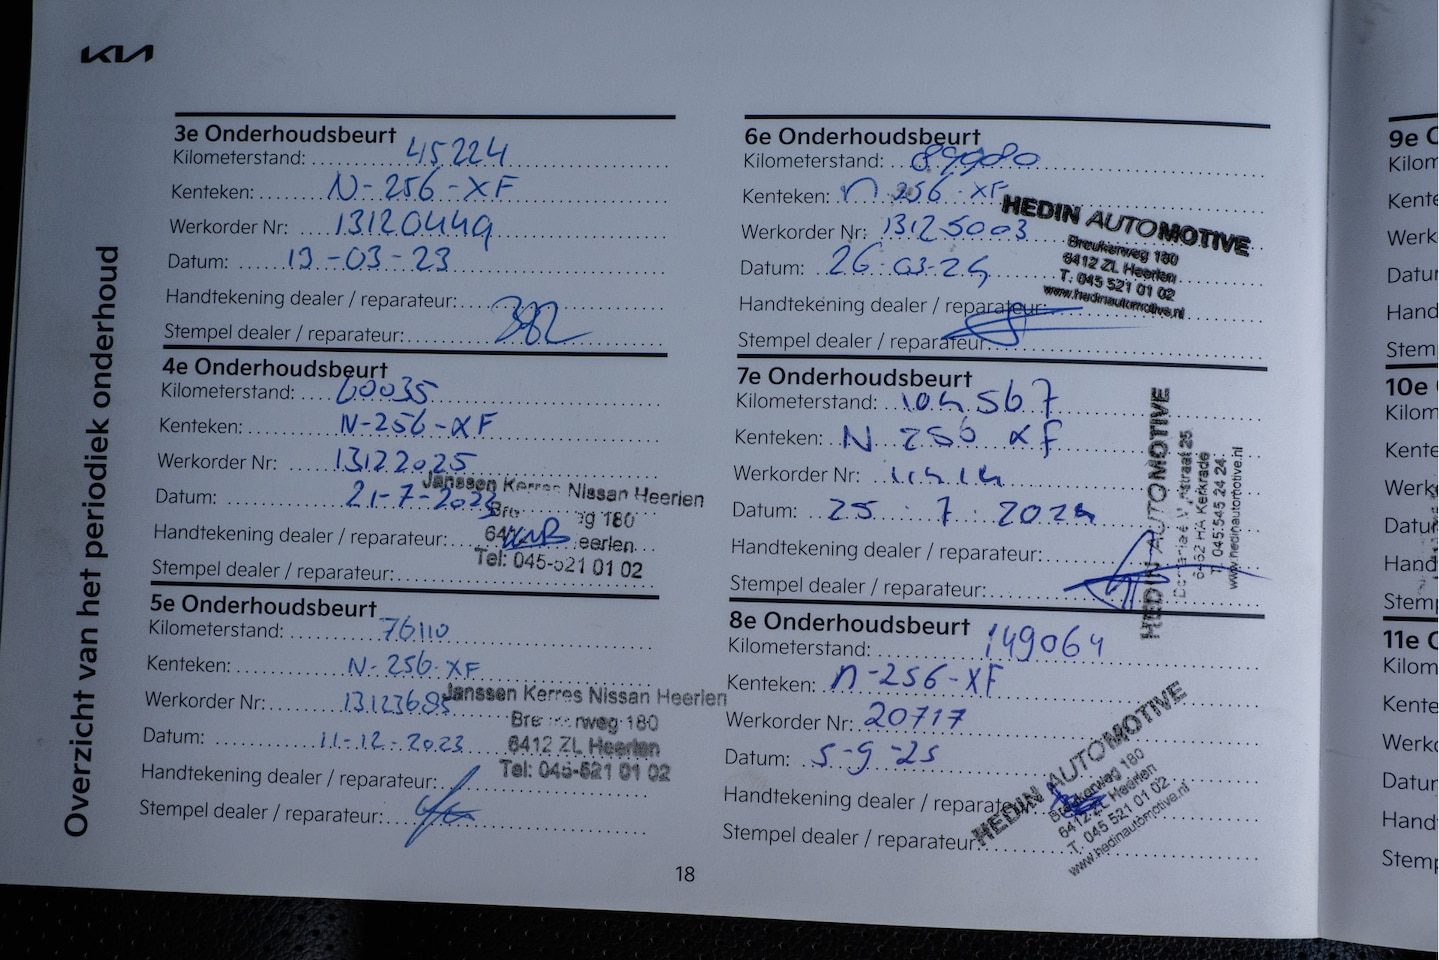 KIA
Overzicht van het periodiek onderhoud
3e Onderhoudsbeurt
Kilometerstand: 45224
Kenteken: N-256-XF
Werkorder Nr: 13120449
Datum: 13-03-23
Handtekening dealer / reparateur:
Stempel dealer / reparateur:
4e Onderhoudsbeurt
Kilometerstand: 60035
Kenteken: N-256-XF
Werkorder Nr: 13122025
Datum: 21-7-2023
Handtekening dealer / reparateur:
Stempel dealer / reparateur:
Janssen Kerres Nissan Heerlen
180
Tel: 045-521 01 02
5e Onderhoudsbeurt
Kilometerstand: 76110
Kenteken: N-256-XF
Werkorder Nr: 13123685
Datum: 11-12-2023
Handtekening dealer / reparateur:
Stempel dealer / reparateur:
Janssen Kerres Nissan Heerlen
180
6412 ZL Heerlen
Tel: 045-521 01 02
6e Onderhoudsbeurt
Kilometerstand: 89980
Kenteken: n-256-XF
Werkorder Nr: 13125003
Datum: 26-03-24
Handtekening dealer / reparateur:
Stempel dealer / reparateur:
HEDIN AUTOMOTIVE
Breukerweg 180
6412 ZL Heerlen
T: 045 521 01 02
www.hedinautomotive.nl
7e Onderhoudsbeurt
Kilometerstand: 104567
Kenteken: N 256 XF
Werkorder Nr:
Datum: 25 . 7 . 2024
Handtekening dealer / reparateur:
Stempel dealer / reparateur:
HEDIN AUTOMOTIVE
25
6462 HA Kerkrade
T: 045 545 24 24
www.hedinautomotive.nl
8e Onderhoudsbeurt
Kilometerstand: 149064
Kenteken: n-256-XF
Werkorder Nr: 20717
Datum: 5-9-25
Handtekening dealer / reparateur:
Stempel dealer / reparateur:
HEDIN AUTOMOTIVE
Breukerweg 180
6412 ZL Heerlen
T. 045 521 01 02
www.hedinautomotive.nl
18
9e O
Kilom
Kente
Werk
Datur
Hand
Stem
10e
Kilom
Kente
Werk
Datu
Hand
Stem
11e O
Kilom
Kente
Werko
Datur
Hand
Stemp